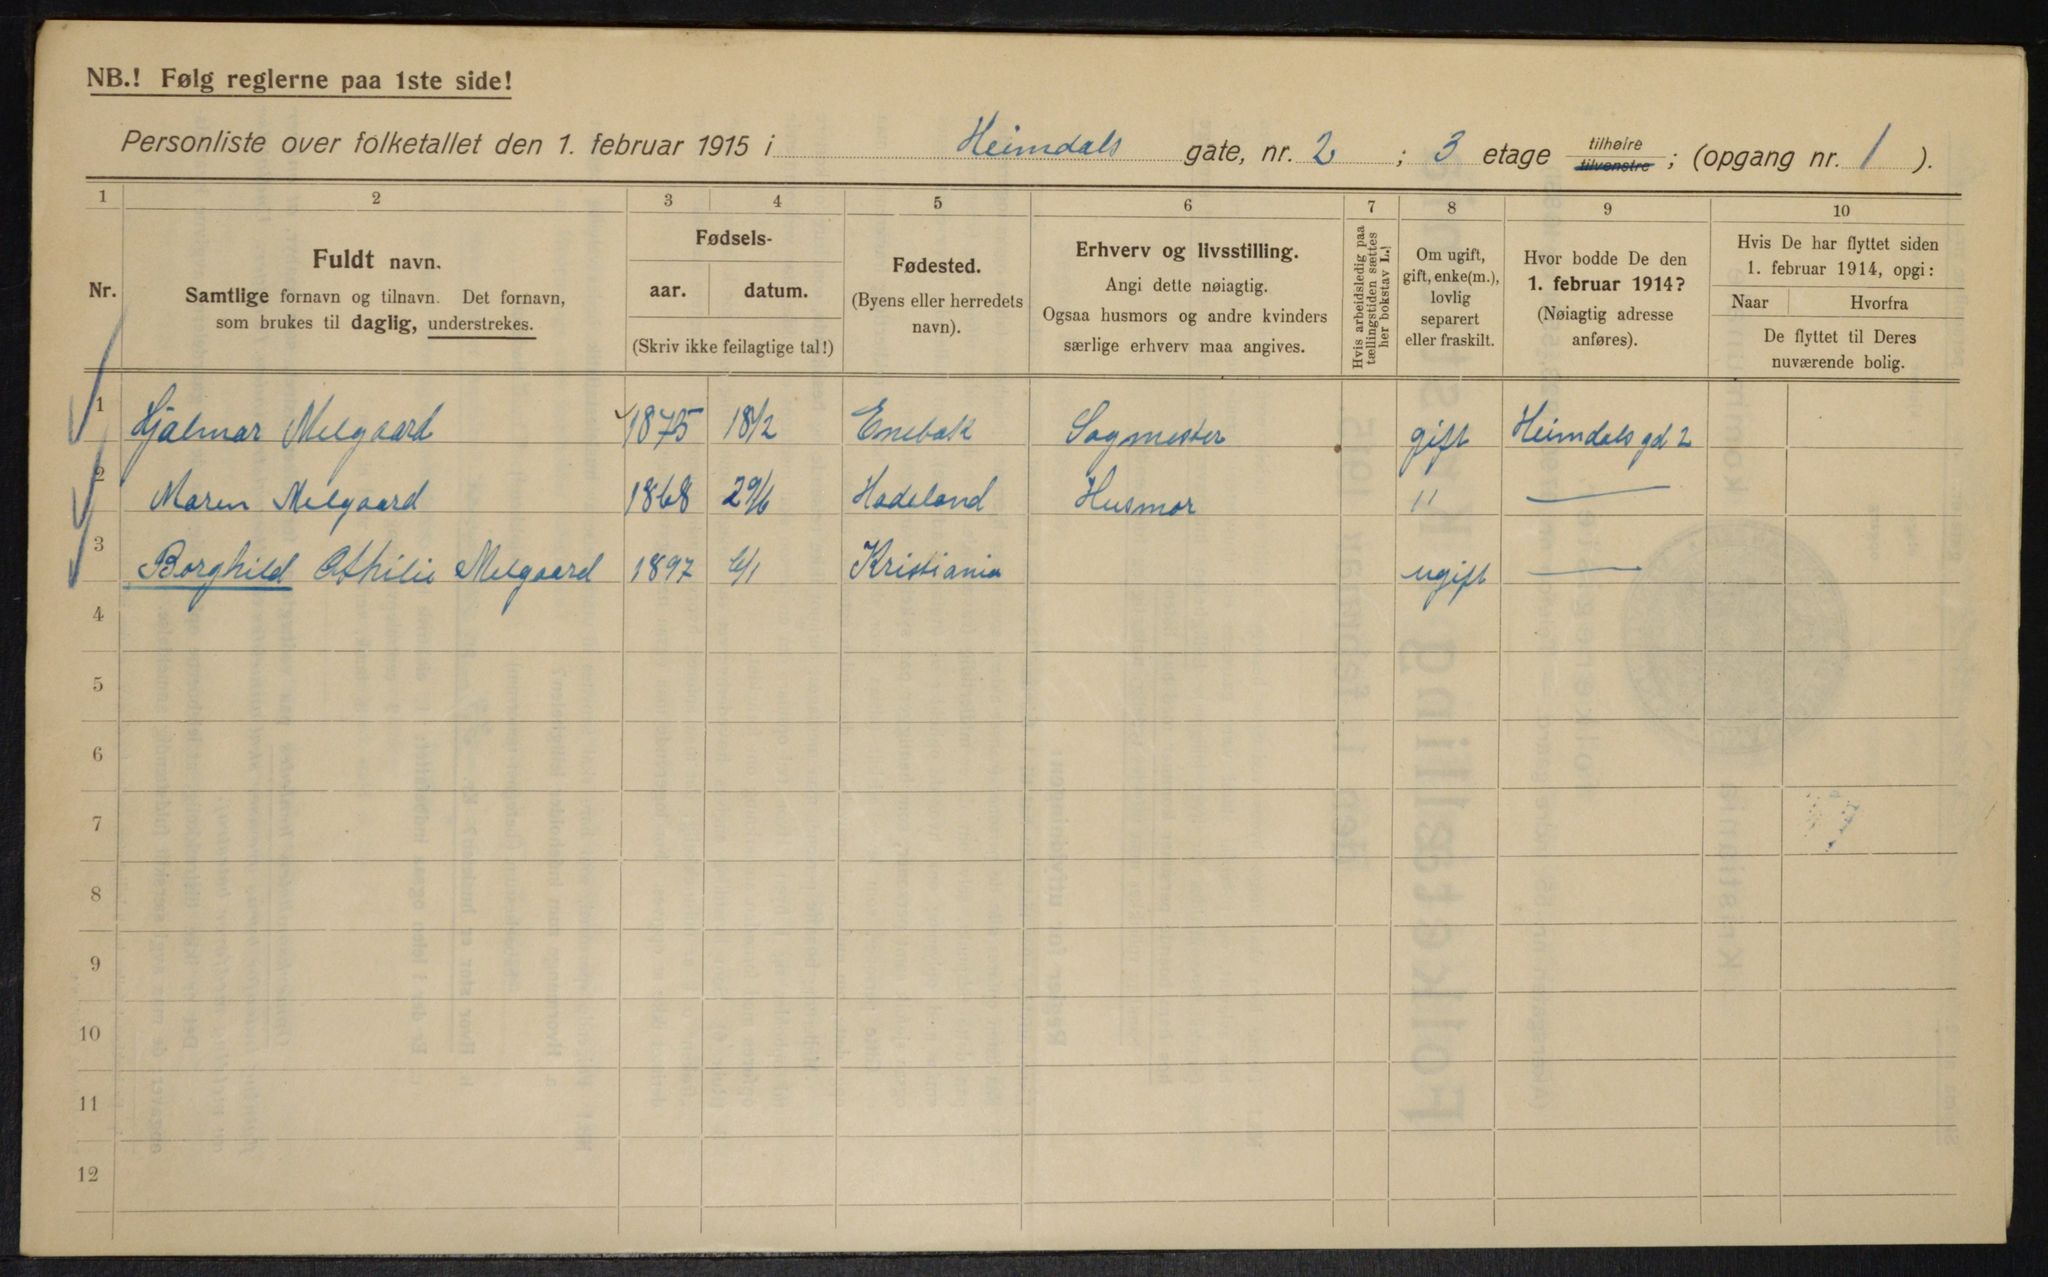 NB.! Følg reglerne paa 1ste side!
Personliste over folketallet den 1. februar 1915 i Heimdals gate, nr. 2 ; 3 etage tilhøire tilvenstre ; (opgang nr. 1 ).
1 2 3 4 5 6 7 8 9 10
Nr.
Fuldt navn.
Samtlige fornavn og tilnavn. Det fornavn,
som brukes til daglig, understrekes.
Fødsels-
aar. datum.
(Skriv ikke feilagtige tal!)
Fødested.
(Byens eller herredets
navn).
Erhverv og livsstilling.
Angi dette nøiagtig.
Ogsaa husmors og andre kvinders
særlige erhverv maa angives.
Hvis arbeidsledig paa
tællingstiden sættes
her bokstav L.!
Om ugift,
gift, enke(m.),
lovlig
separert
eller fraskilt.
Hvor bodde De den
1. februar 1914?
(Nøiagtig adresse
anføres).
Hvis De har flyttet siden
1. februar 1914, opgi:
Naar Hvorfra
De flyttet til Deres
nuværende bolig.
1 Hjalmar Melgaard 1875 18/2 Enebak Sagmester gift Heimdals gd 2
2 Maren Melgaard 1868 29/6 Hadeland Husmor " —
3 Borghild Othilie Melgaard 1897 6/1 Kristiania ugift —
4
5
6
7
8
9
10
11
12